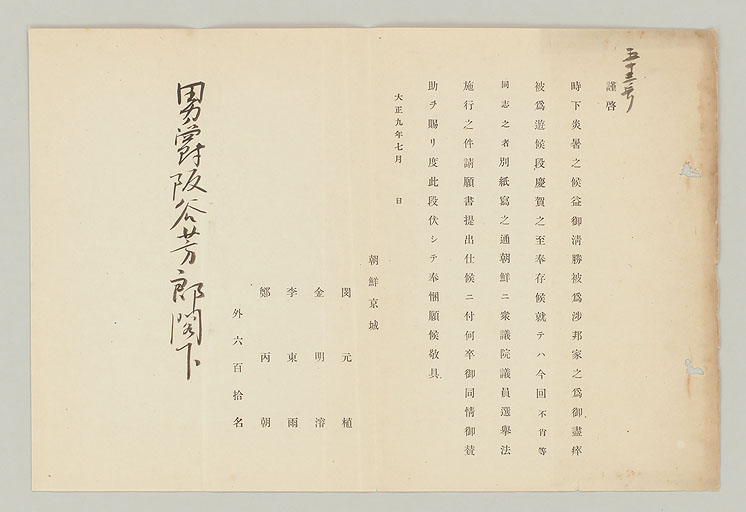 五十三号
謹啓
時下炎暑之候益御淸勝被爲涉邦家之爲御盡瘁
被爲遊候段慶賀之至奉存候就テハ今回不肖等
同志之者別紙寫之通朝鮮ニ衆議院議員選擧法
施行之件請願書提出仕候ニ付何卒御同情御賛
助ヲ賜リ度此段伏シテ奉悃願候敬具
大正九年七月　日
朝鮮京城
閔元植
金明濬
李東雨
鄭丙朝
外六百拾名
男爵阪谷芳郎閣下